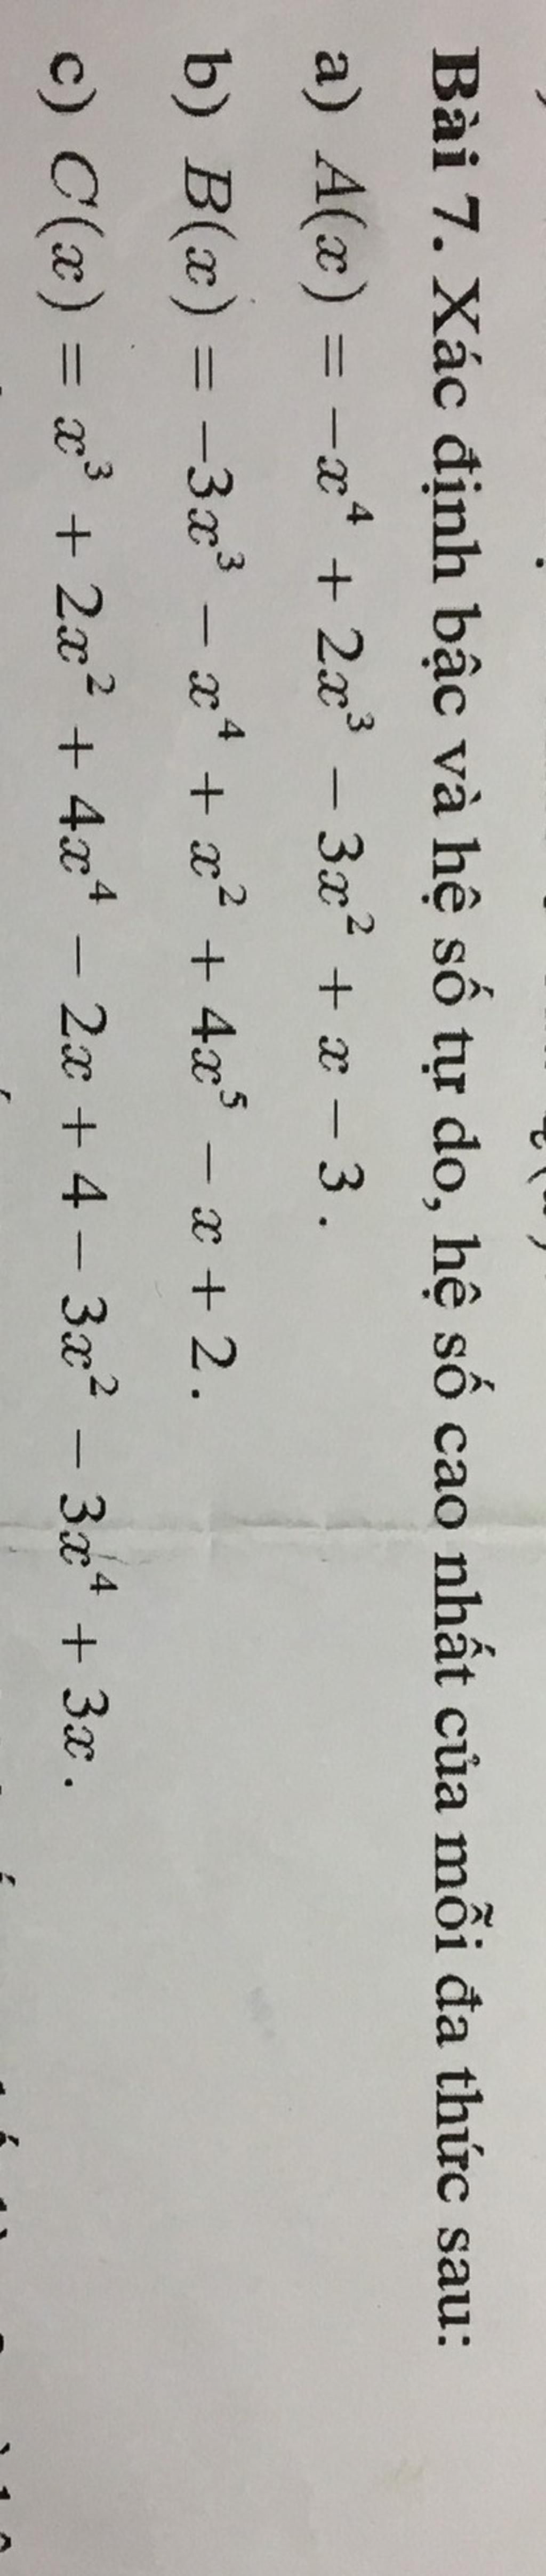 Bài 7. Xác định bậc và hệ số tự do, hệ số cao nhất của mỗi đa thức sau:
a) A(x) = −x⁴ + 2x³ − 3x² + x − 3.
b) B(x) = −3x³ − x⁴ + x² + 4x⁵ − x + 2.
c) C(x) = x³ + 2x² + 4x⁴ − 2x + 4 − 3x² − 3x⁴ + 3x.